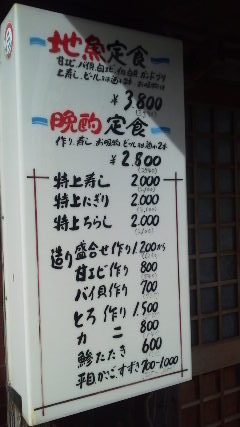 地魚定食
甘エビ バイ貝
上寿し、ビール又は酒
¥3,800
晩酌定食
作り、寿し、お吸物 ビール又は酒
¥2,800
特上寿し 2,000
特上にぎり 2,000
特上ちらし 2,000
造り盛合せ作り 1,200から
甘エビ作り 800
バイ貝作り 700
とろ作り 1,500
カニ 800
鯵たたき 600
平目、かご、すずき 700-1000